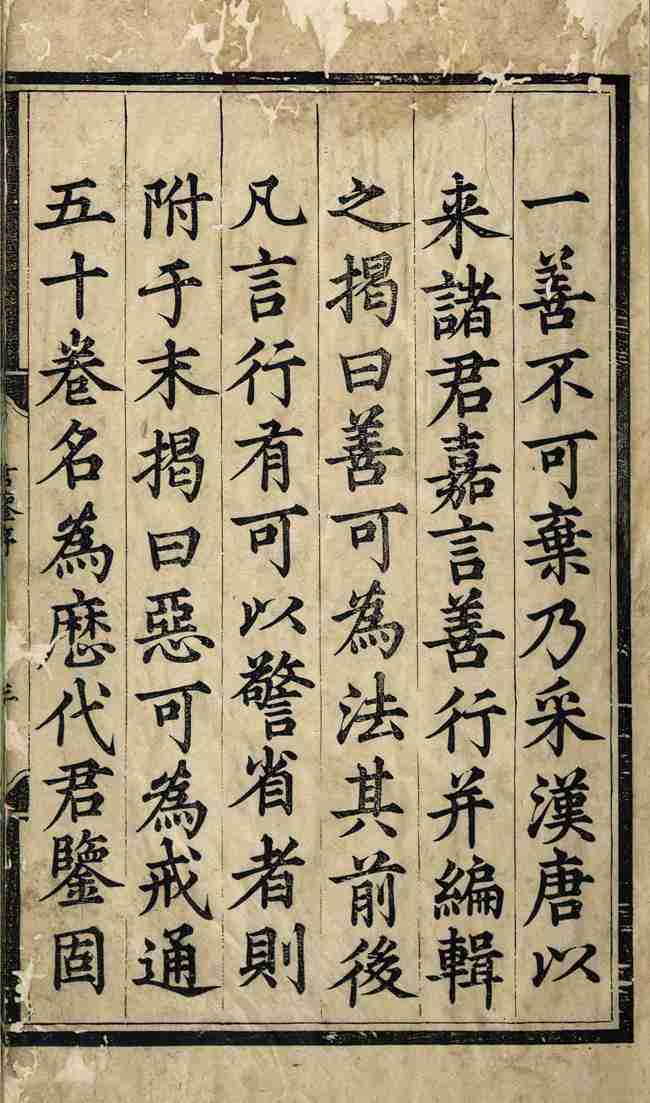 一善不可棄乃采漢唐以
来諸君嘉言善行并編輯
之揭曰善可為法其前後
凡言行有可以警省者則
附于末揭曰惡可為戒通
五十卷名為歷代君鑒固
三